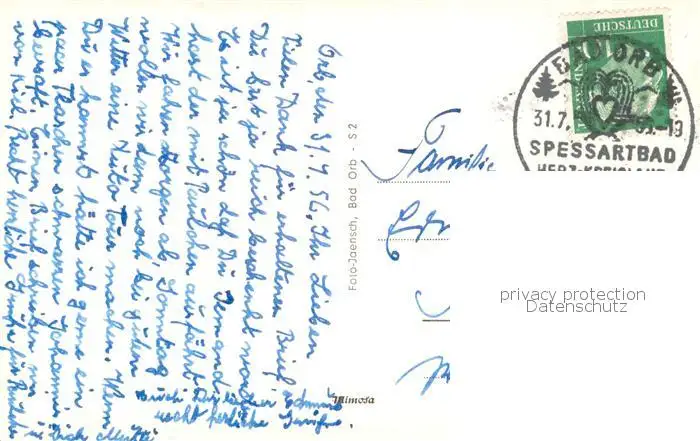 Orb, den 31.7.56. Ihr Lieben
Vielen Dank für erhaltenen Brief
Du bist ja reich beschenkt worden
Es ist ja schön daß Du Jemand
hast der mit Paulchen auffährt
Wir fahren Morgen ab, Sonntag
wollen wir dann noch bei guten
Wetter eine Auto Tour machen. Wenn
Du es kannst hätte ich gerne ein
paar Flaschen schwarzen Johannis
beersaft. Einen Brief schreiben wir
von Kiel. Recht herzliche Grüße für Paulchen
u. Dich Mutti
Auch Dir lieber
recht herzliche Grüße
Foto-Jaensch, Bad Orb - S 2
Mimosa
Familie
DEUTSCHE
BAD ORB
31.7. -19
SPESSARTBAD
privacy protection
Datenschutz